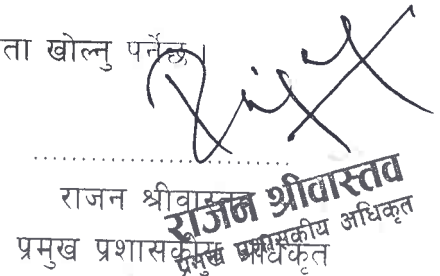 ता खोल्नु पर्नेछ।
....................................
राजन श्रीवास्तव
प्रमुख प्रशासकीय अधिकृत
राजन श्रीवास्तव
प्रमुख प्रशासकीय अधिकृत